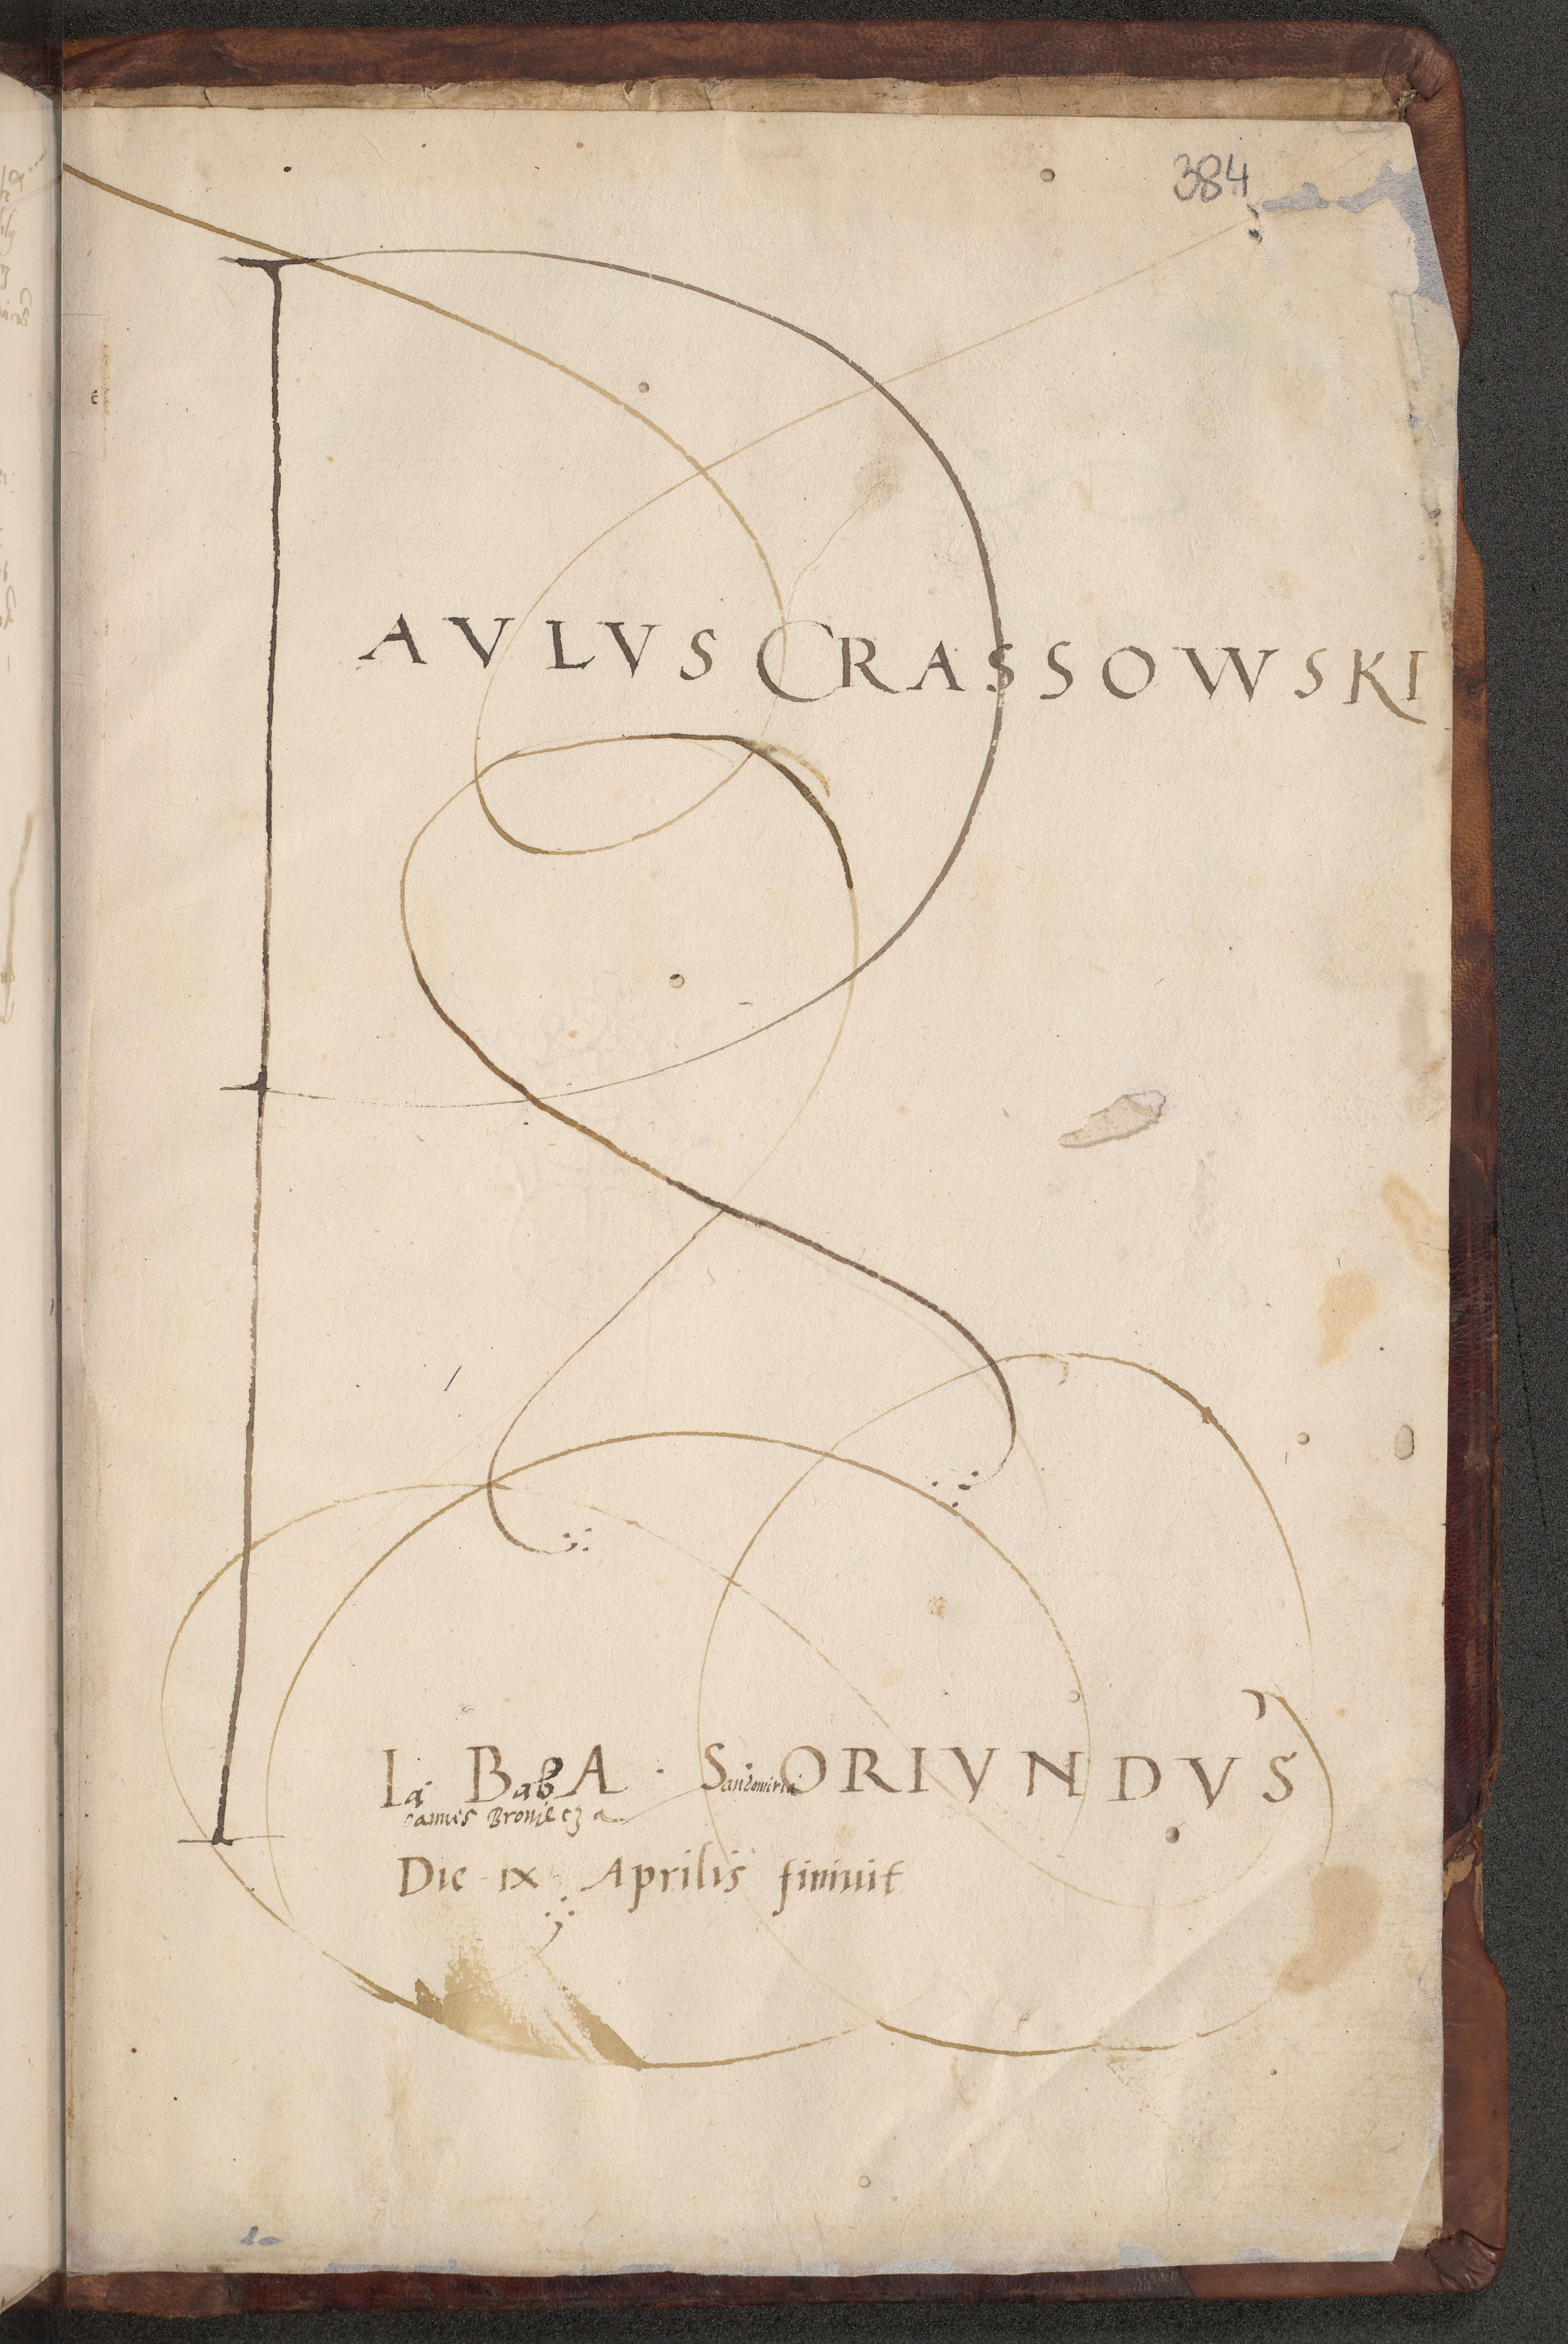 384
PAVLVS CRASSOWSKI
Ia BabA · Sandomiria ORIVNDVS
oannes Bronieeza
Die IX Aprilis finiuit